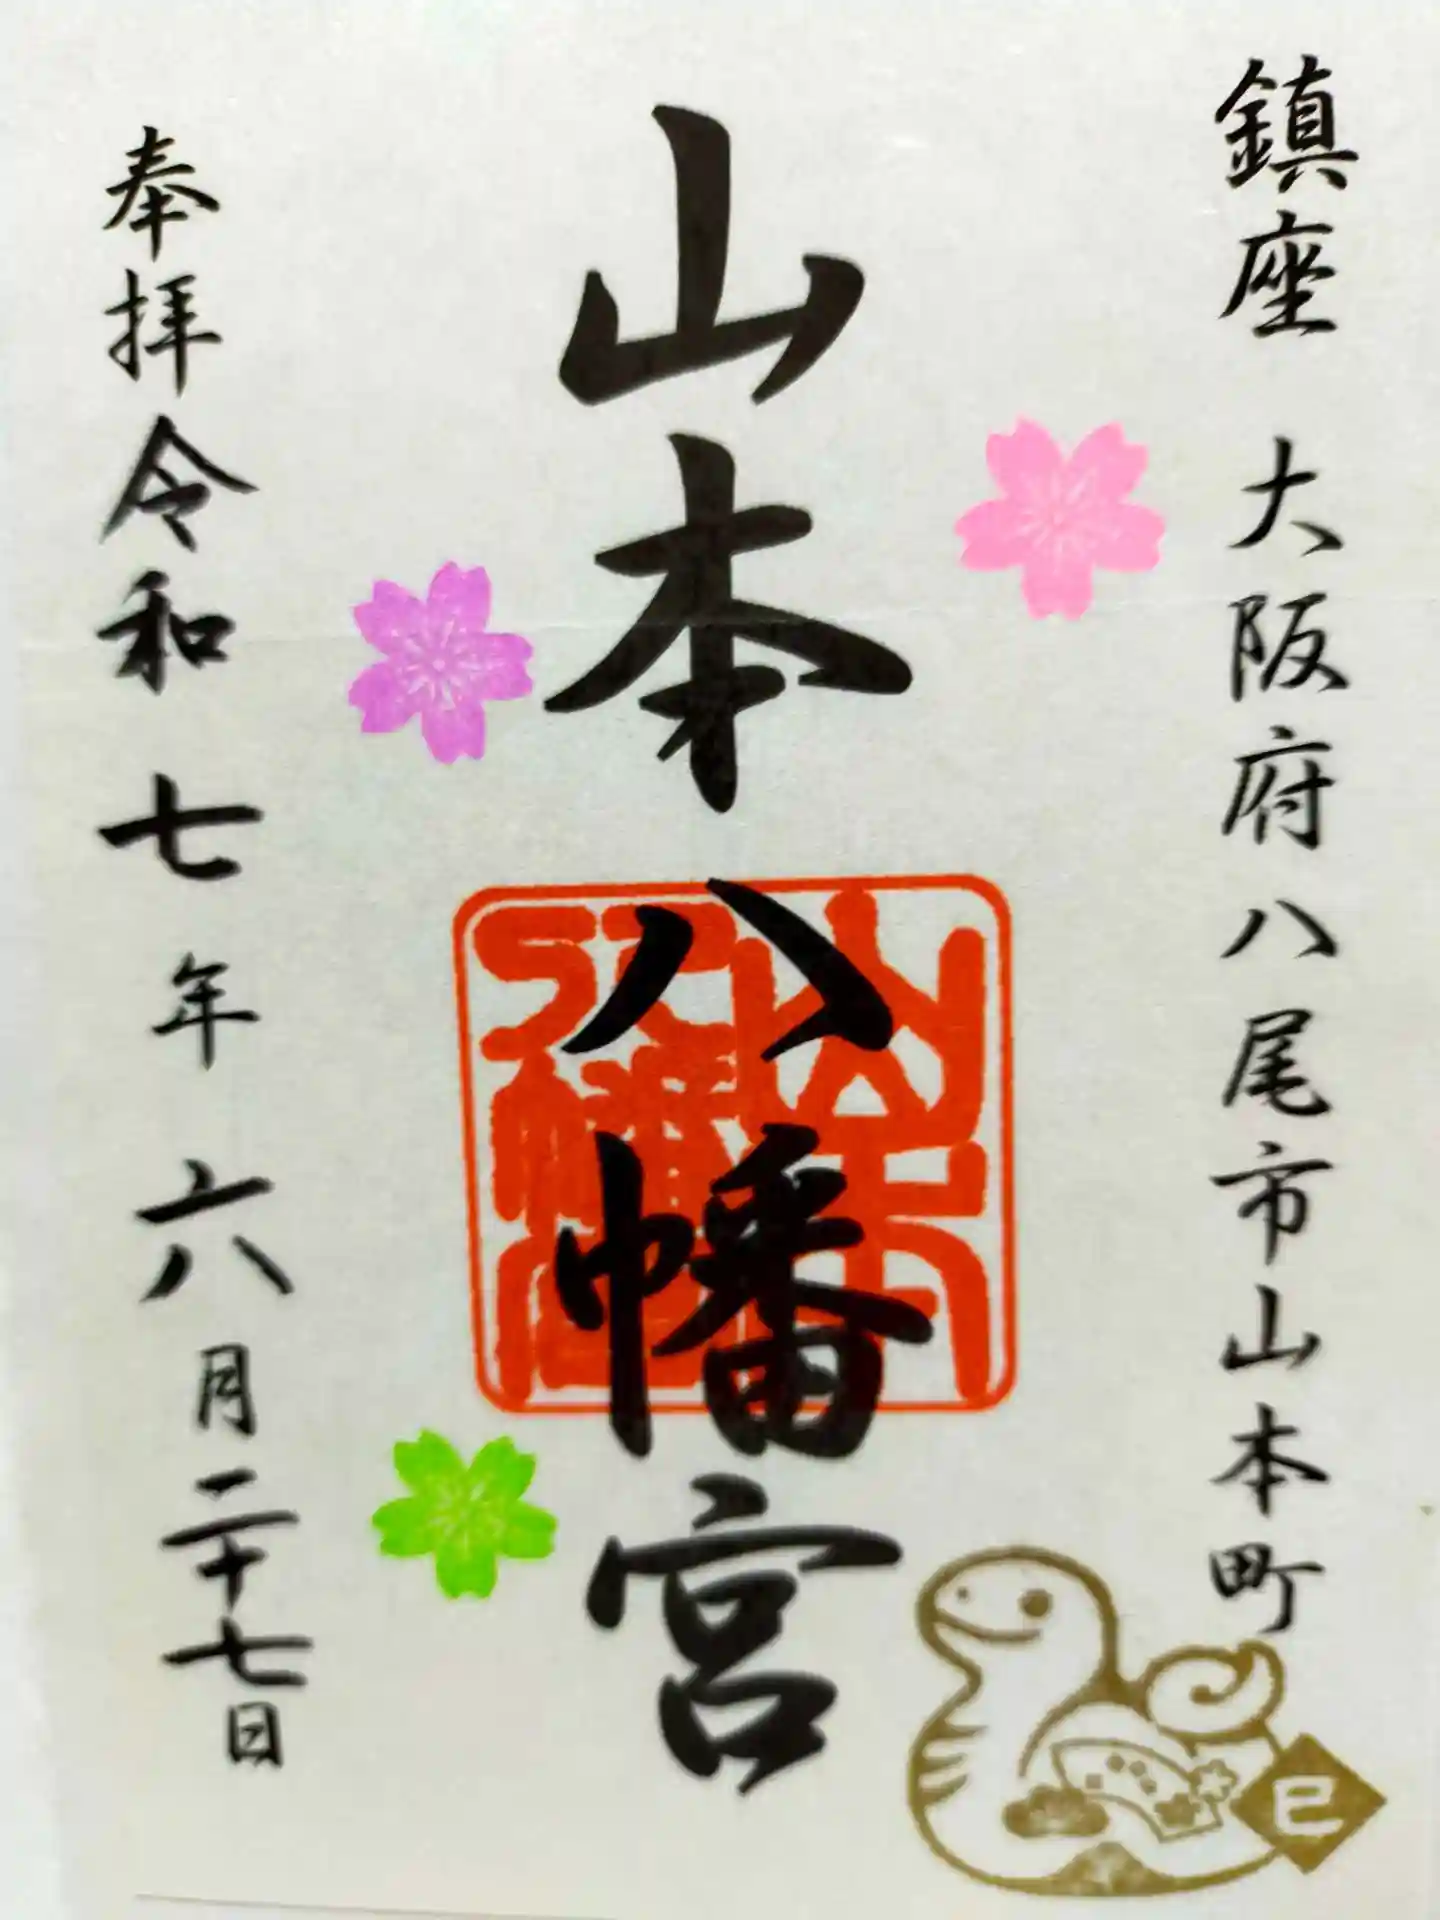 鎮座 大阪府八尾市山本町
山本八幡宮
奉拝 令和七年六月二十七日
山本
八幡宮
巳